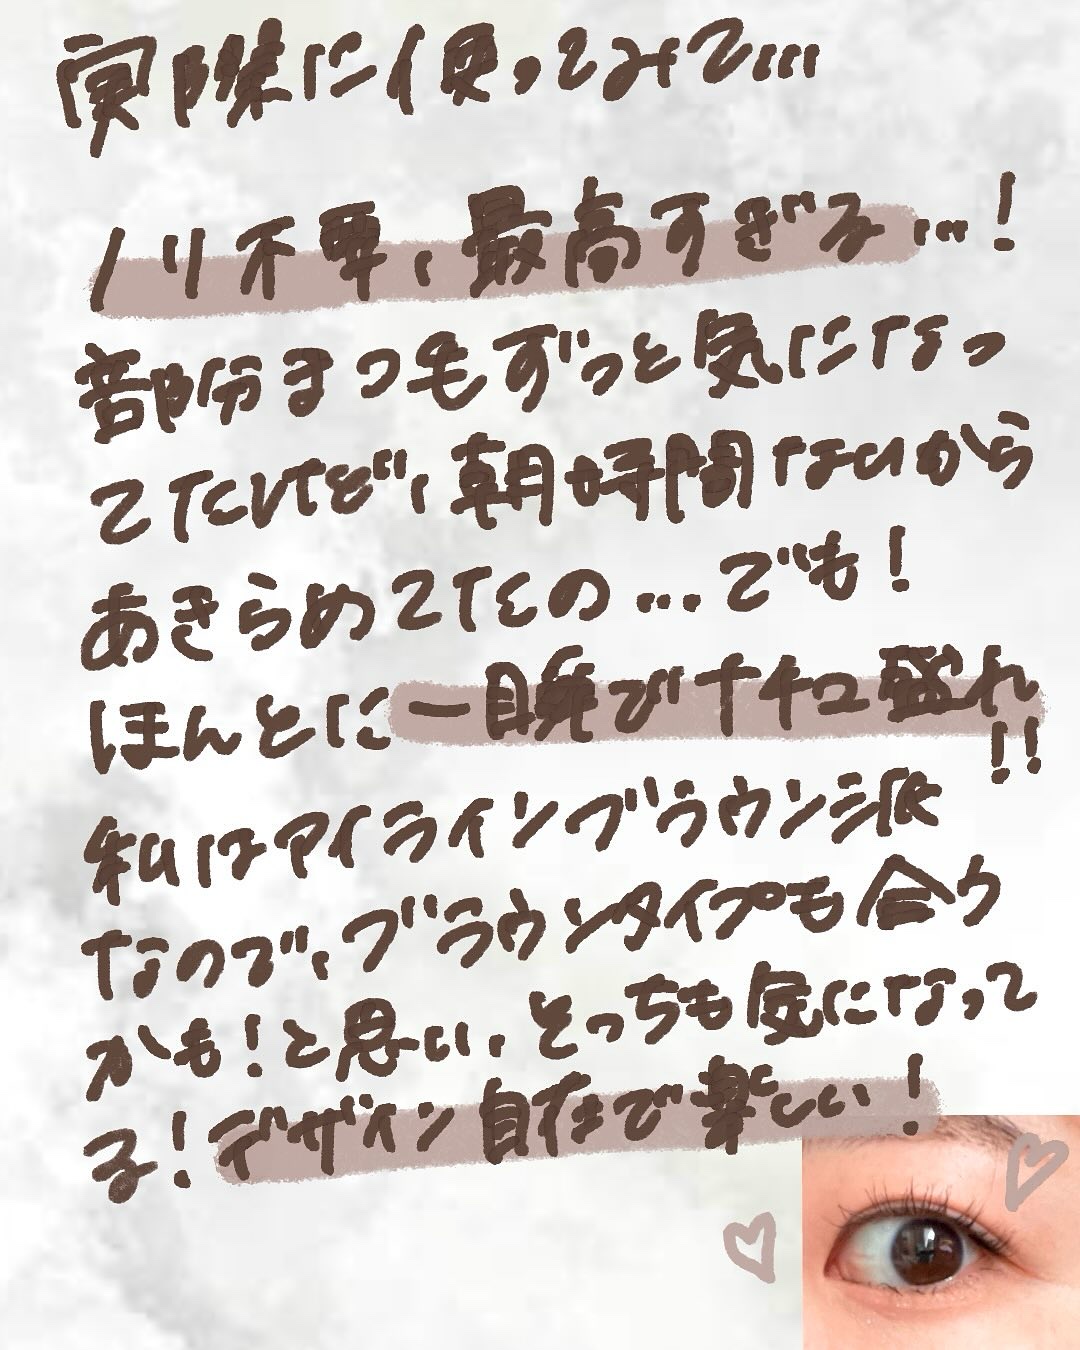 実際に使ってみて...
ノリ不要、最高すぎる...!
部分まつもずっと気になっ
てたけど、朝時間ないから
あきらめてたの...でも!
ほんとに一瞬でナチュ盛れ
!!
私はアイラインブラウン派
なので、ブラウンタイプも合う
かも!と思い、そっちも気になって
る!デザイン自在で楽しい!